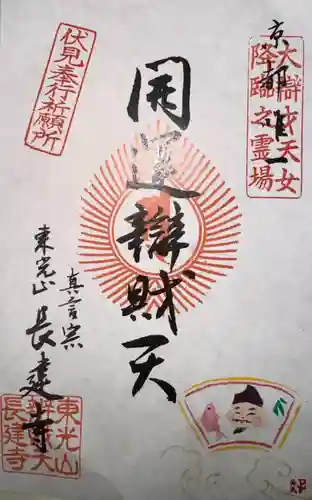 京都唯一
大辯財天女
降臨之霊場
伏見奉行祈願所
開運辯財天
真言宗
東光山
長建寺
東光山
辯財天
長建寺